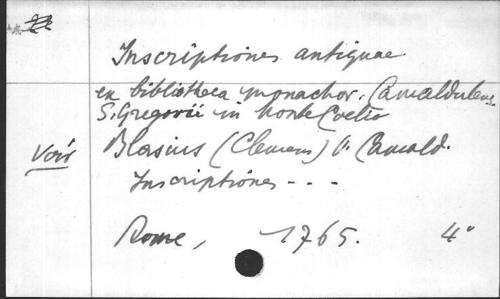 Inscriptiones antiquae
ex bibliotheca monachor. Camaldulens.
S. Gregorii in Monte Coelio
Voir Blasius (Clemens) Camald.
Inscriptiones - - -
Rome, 1765. 4°